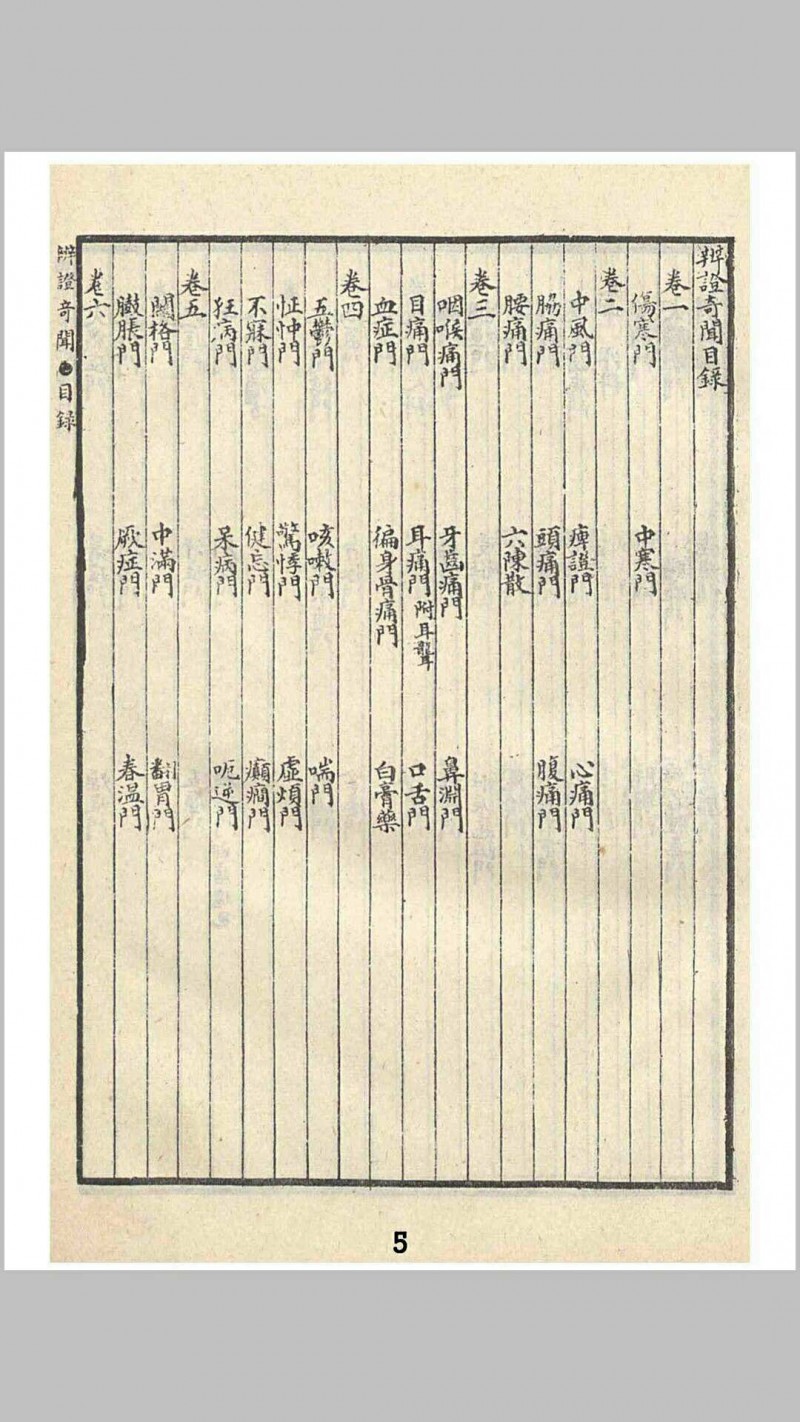 辨證奇聞目錄
卷一
傷寒門 中寒門
卷二
中風門 痺證門 心痛門
脇痛門 頭痛門 腹痛門
腰痛門 六陳散
卷三
咽喉痛門 牙齒痛門 鼻淵門
目痛門 耳痛門附耳聾 口舌門
血症門 徧身骨痛門 白膏藥
卷四
五鬱門 咳嗽門 喘門
怔忡門 驚悸門 虛煩門
不寐門 健忘門 癲癇門
狂病門 呆病門 呃逆門
卷五
關格門 中滿門 翻胃門
臌脹門 厥症門 春温門
卷六
辨證奇聞 目錄
5